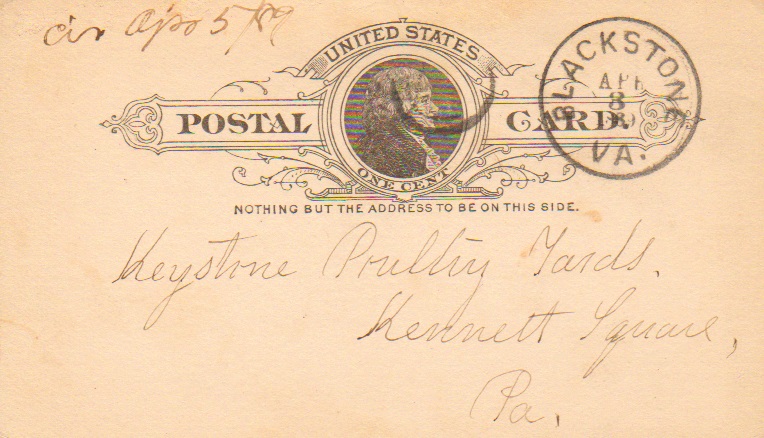 5/89
UNITED STATES
POSTAL CARD.
ONE CENT
NOTHING BUT THE ADDRESS TO BE ON THIS SIDE.
BLACKSTONE
APR
8
89
VA.
Keystone Poultry Yards,
Kennett Square,
Pa,